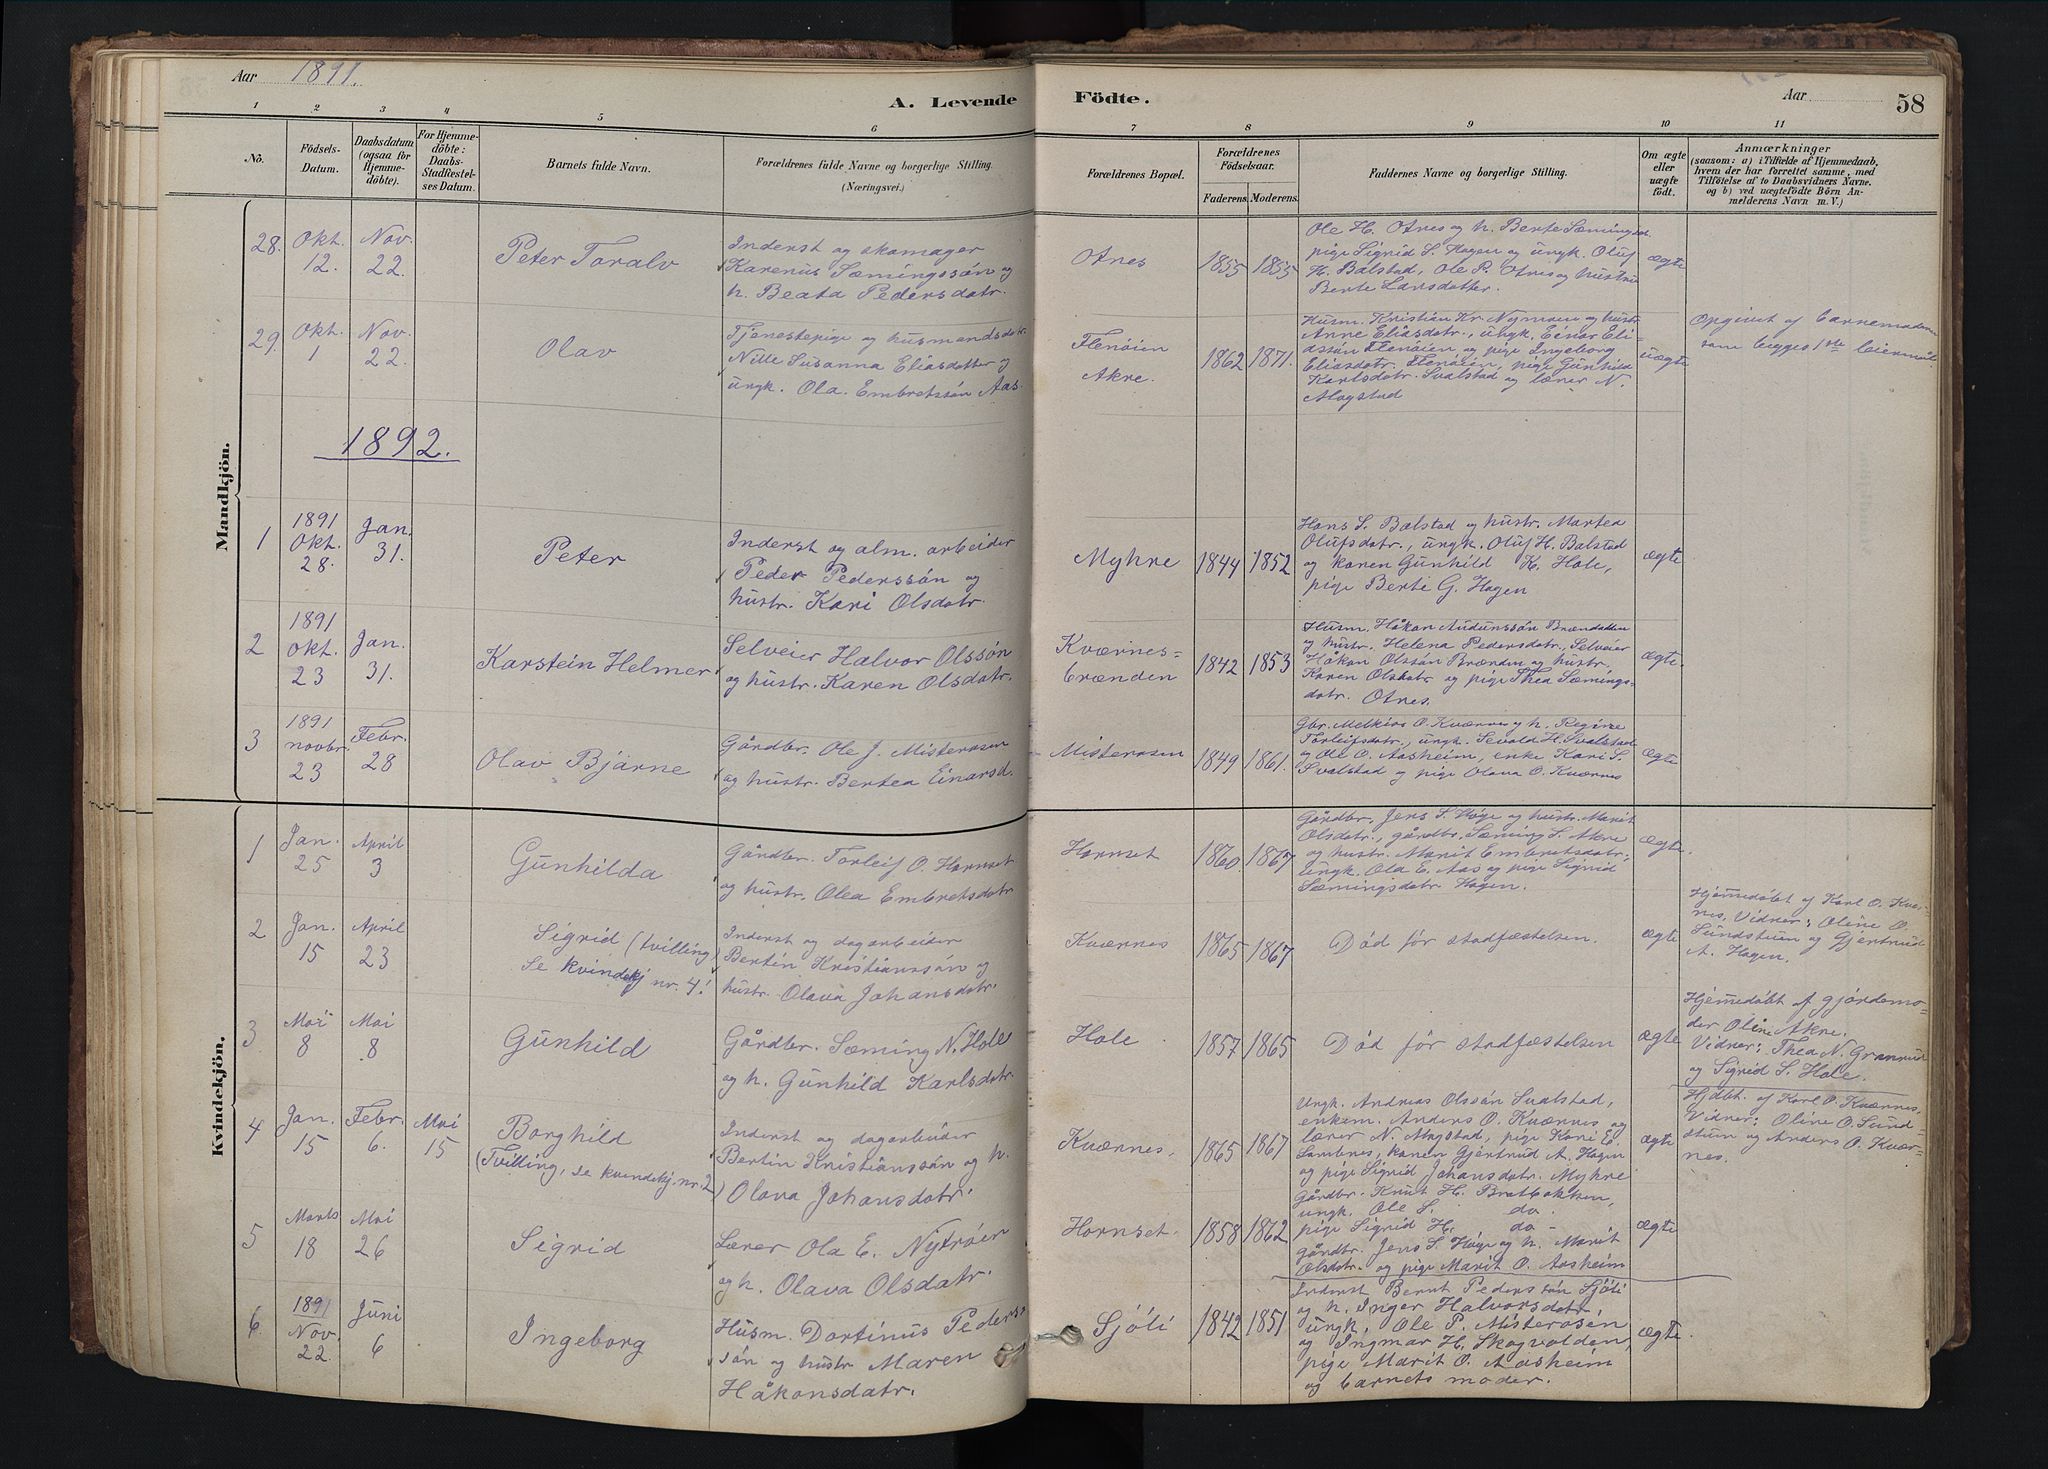 Aar 1891.
A. Levende Födte.
Aar
58
1 2 3 4 5 6 7 8 9 10 11
No.
Födsels-Datum.
Daabsdatum (ogsaa for Hjemmedöbte).
For Hjemmedöbte: Daabs-Stadfæstelses Datum.
Barnets fulde Navn.
Forældrenes fulde Navne og borgerlige Stilling. (Næringsvei.)
Forældrenes Bopæl.
Forældrenes Födselsaar.
Faderens. Moderens.
Faddernes Navne og borgerlige Stilling.
Om ægte eller uægte födt.
Anmærkninger
(saasom: a) i Tilfælde af Hjemmedaab,
hvem der har forrettet samme, med
Tilföielse af to Daabsvidners Navne.
og b) ved uægtefödte Börn An-
melderens Navn m. V.)
Mandkjön.
28. Okt. 12. Nov. 22.
Peter Toralv
Inderst og skomager
Karenus Sæmingssön og
h. Beata Pedersdatr.
Otnes 1855 1855
Ole H. Otnes og h. Berte Sæmingsd.
pige Sigrid S. Hagen og ungk. Oluf
H. Balstad, Ole P. Otnes og hustru
Berte Larsdatter.
ægte
29. Okt. 1 Nov. 22.
Olav
Tjenestepige og husmandsdatr.
Nille Susanna Eliasdatter og
ungk. Ola Embretssön Aas.
Flenöien
Akre.
1862 1871.
Husm. Kristian Kr. Nyman og hustr.
Anne Eliasdatr., ungk. Einar Eli-
assön Flenöien og pige Ingeborg
Eliasdatr. Flenöien, pige Gunhild
Karlsdatr. Svalstad og lærer N.
Mogstad
uægte
Opgivet af barnemoderen
som begges 1ste leiermål.
1892.
1 1891 Okt. 28. Jan. 31.
Peter
Inderst og alm. arbeider
Peder Pederssön og
hustr. Kari Olsdatr.
Myhre 1844 1852
Hans S. Balstad og hustr. Martea
Olufsdatr., ungk. Oluf H. Balstad
og konen Gunhild K. Hole,
pige Berte G. Hagen
ægte
2 1891 Okt. 23 Jan. 31.
Karstein Helmer
Selveier Halvor Olssön
og hustr. Karen Olsdatr.
Kværnes-
brænden
1842 1853
Husm. Håkon Audunssön Brændadden
og hustr. Helena Pedersdatr., Selveier
Håkon Olssön Brænden og hustr.
Karen Olsdatr. og pige Thea Sæmings-
datr. Otnes.
ægte.
3 1891 novbr. 23 Febr. 28
Olav Bjarne
Gårdbr. Ole J. Misterosen
og hustr. Bertea Einarsd.
Misterosen 1849 1861.
Gbr. Melkior O. Kværnes og h. Regine
Torleifsdatr., ungk. Sevald H. Svalstad
og Ole O. Aasheim, enke Kari S.
Svalstad og pige Olava O. Kværnes
ægte
Kvindekjön.
1 Jan. 25 April 3
Gunhilda
Gårdbr. Torleif O. Hornset
og hustr. Olea Embretsdatr
Hornset 1860. 1867
Gårdbr. Jens S. Höge og hustr. Marit
Olsdatr., gårdbr. Sæming S. Akre
og hustr. Marit Embretsdatr.,
ungk. Ola E. Aas og pige Sigrid
Sæmingsdatr Hagen.
ægte.
2 Jan. 15 April 23
Sigrid (tvilling)
Se kvindekj nr. 4!
Inderst og dagarbeider
Bertin Kristianssön og
hustr. Olava Johansdatr.
Kværnes 1865 1867
Död för stadfæstelsen.
ægte
Hjemmedöbt af Karl O. Kvær-
nes, Vidner: Oline O.
Sundstuen og Gjertrud
A. Hagen.
3 Mai 8 Mai 8
Gunhild
Gårdbr. Sæming N. Hole
og h. Gunhild Karlsdatr.
Hole 1857 1865
Död för stadfæstelsen
ægte
Hjemmedöbt af gjordemo-
der Oline Akre.
Vidner: Thea N. Granrud
og Sigrid S. Hole.
4 Jan. 15 Febr 6. Mai 15
Borghild
(Tvilling, se kvindekj. nr. 2)
Inderst og dagarbeider
Bertin Kristianssön og h.
Olava Johansdatr.
Kværnes. 1865 1867
Ungk. Andreas Olssön Svalstad,
enkem. Anders O. Kværnes og
lærer N. Mogstad, pige Kari E.
Sambnes, konen Gjertrud A. Hagen
og pige Sigrid Johansdatr. Myhre
ægte
Hjdbt. af Karl O. Kværnes,
Vidner: Oline O. Sund-
stuen og Anders O. Kvær-
nes.
5 Marts 18 Mai 26
Sigrid
Lærer Ola E. Nytröen
og h. Olava Olsdatr.
Hornset. 1858 1862
Gårdbr. Knut H. Bratbakken,
ungk. Ole S. do
pige Sigrid H. do -
Gårdbr. Jens S. Höge og h. Marit
Olsdatr. og pige Marit O. Aasheim
ægte
6. 1891 Nov. 22. Juni 6
Ingeborg
Husm. Dortinus Peders-
sön og hustr Maren
Håkonsdatr.
Sjöli 1842 1851
Inderst Bernt Pederssön Sjöli
og h. Inger Halvorsdatr.,
ungk. Ole P. Misterosen
og Ingmar H. Skogvolden,
pige Marit O. Aasheim
og barnets moder.
ægte.